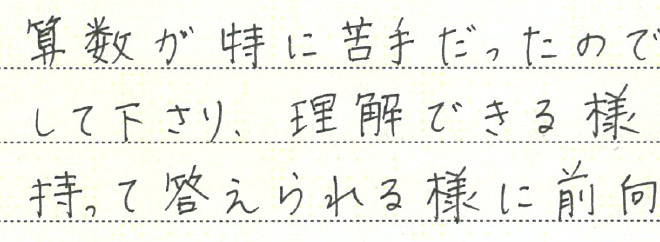 算数が特に苦手だったので
して下さり、理解できる様
持って答えられる様に前向